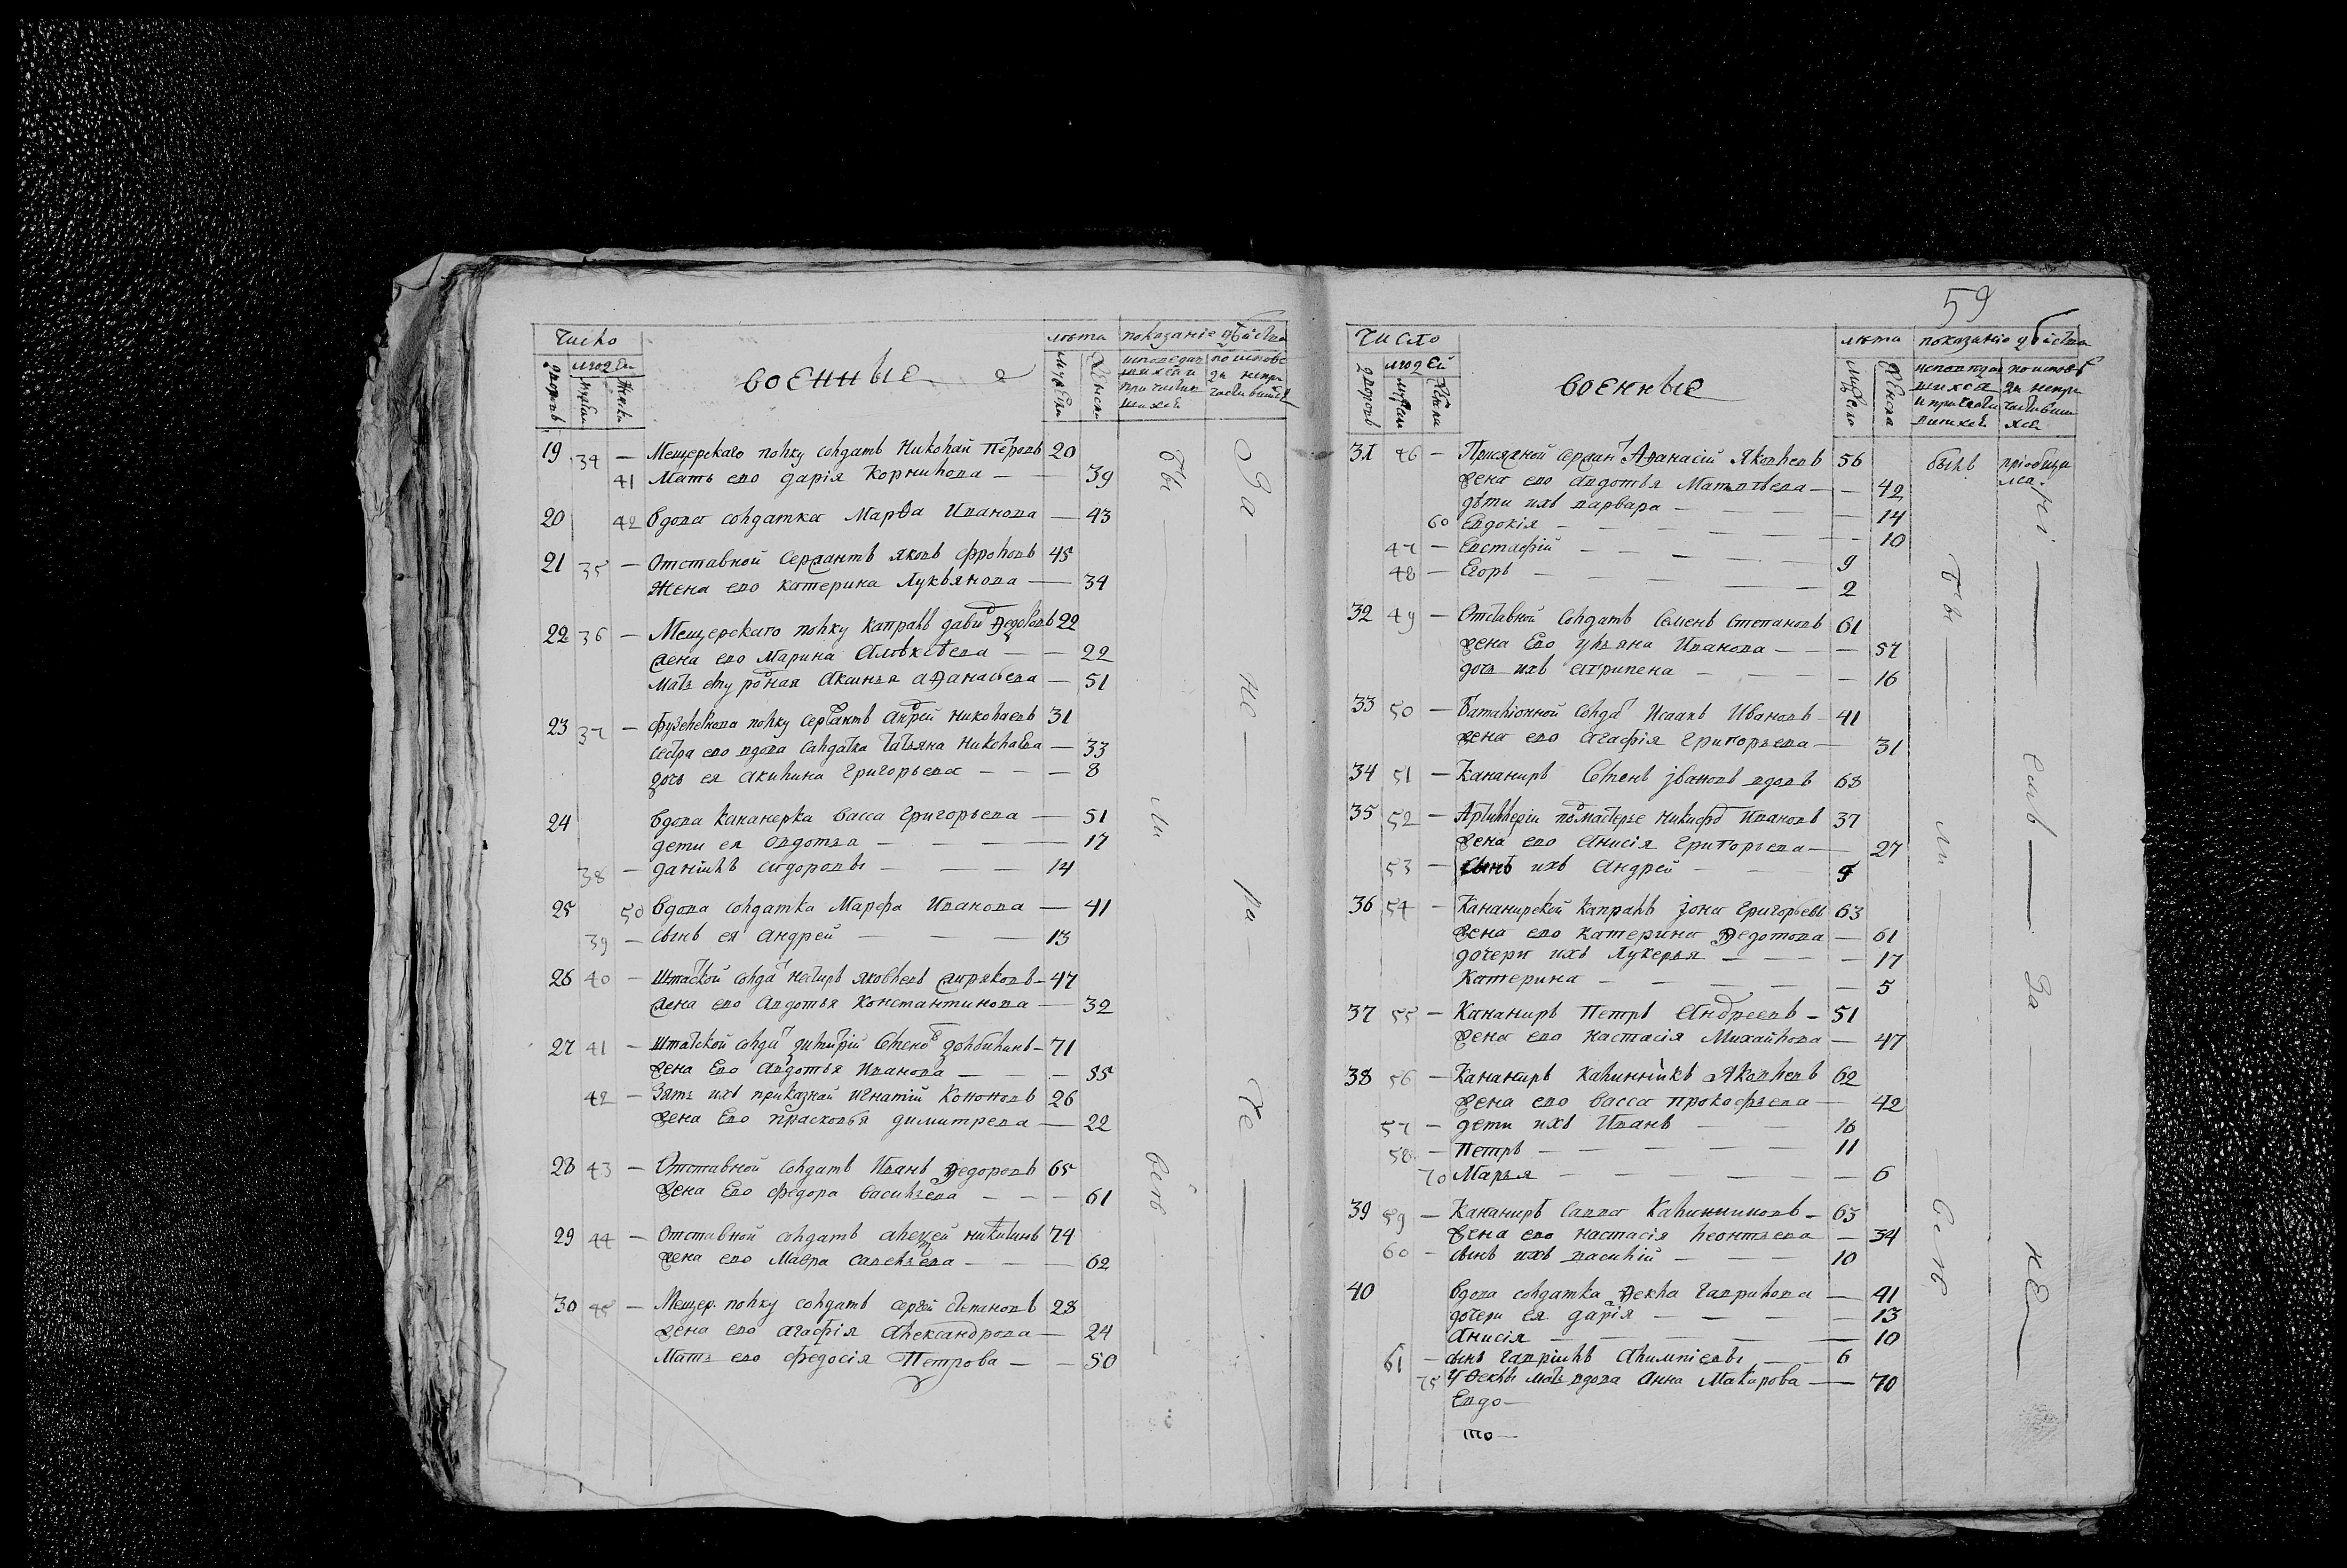 59
Число военныѣ лѣта показаніе дѣйства
дворовъ людей мужска женска
19 34 — Мещерскаго полку солдатъ Николай Петровъ 20
41 Мать ево дарія Корнилова — — 39
20 42 вдова солдатка Марѳа Иванова — 43
21 35 — Отставной Сержантъ яковъ фроловъ 45
жена ево катерина Лукьянова — 34
22 36 — Мещерскаго полку капралъ давид Ѳедоровъ 22
жена ево Марина Алексѣева — — 22
мать ему родная Аксинья аѳанасьева — 51
23 37 — полку сержантъ андрей николаевъ 31
сестра ево вдова салдатка татьяна николаева — 33
дочь ея акилина григорьева — — — 8
24 вдова кананерка васса григорьева — 51
дети ея овдотья — — — — 17
38 — данилъ сидоровы — — — 14
25 50 вдова солдатка Марфа Иванова — 41
39 — сынъ ея андрей — — — 13
26 40 — штатской солдат яковлевъ — 47
жена ево авдотья константинова — 32
27 41 — штатской солдат димитрій Семенов — 71
жена ево авдотья иванова — — — 55
42 — Зять ихъ приказнай игнатій Кононовъ 26
жена Ево прасковья димитрева — 22
28 43 — Отставной солдатъ Иванъ Ѳедоровъ 65
жена Ево федора васильева — — — 61
29 44 — Отставной солдатъ алексей никитинъ 74
жена ево Мавра савельева — — — 62
30 45 — Мещер. полку солдатъ сергей степановъ 28
жена ево агафія александрова — 24
Мать ево федосія Петрова — — 50
бы — ли — всѣ —
За — не — ра — де —
Число военные лѣта показаніе дѣйства
дворовъ людей мужска женска
31 46 — Присяжной сержан Аѳанасій Яковлевъ 56 былъ пріобщился
жена ево авдотья Матвѣева — — 42
дѣти ихъ варвара — — — — 14
60 Евдокія — — — — — 10
47 — Евстафій — — — — 9
48 — Егоръ — — — — 2
32 49 — Отставной Солдатъ Семенъ степановъ 61
жена Ево ульяна Иванова — — — 57
дочь ихъ агрипена — — — — 16
33 50 — Баталіонной солдат Исаакъ Ивановъ — 41
жена ево агафія григорьева — 31
34 51 — Кананиръ Семенъ Ивановъ вдовъ 68
35 52 — Артилеріи подмастерье никифор Ивановъ 37
жена ево Анисія григорьева — 27
53 — сынъ ихъ Андрей — — 5
36 54 — Кананирской капралъ Iона григорьевъ 63
жена ево катерина Ѳедотова — 61
дочери ихъ Лукерья — — — — 17
Катерина — — — — — 5
37 55 — Кананиръ Петръ Андреевъ — 51
жена ево настасія Михайлова — 47
38 56 — Кананиръ Калинникъ Яковлевъ 62
жена ево васса прокофьева — 42
57 — дети ихъ Иванъ — — 16
58 — Петръ — — — — 11
70 Марья — — — — — 6
39 59 — Кананиръ савва Калинниковъ — 63
жена ево настасія леонтьева — 34
60 — сынъ ихъ василій — — — 10
40 вдова солдатка Ѳекла гаврилова — 41
дочери ея дарія — — — — 13
Анисія — — — — — 10
61 — сынъ гаврилъ Алимпіевы — — 6
75 У Ѳеклы мать вдова Анна Макарова — — 70
Евдо —
то —
бы — ли — всѣ
за — не —